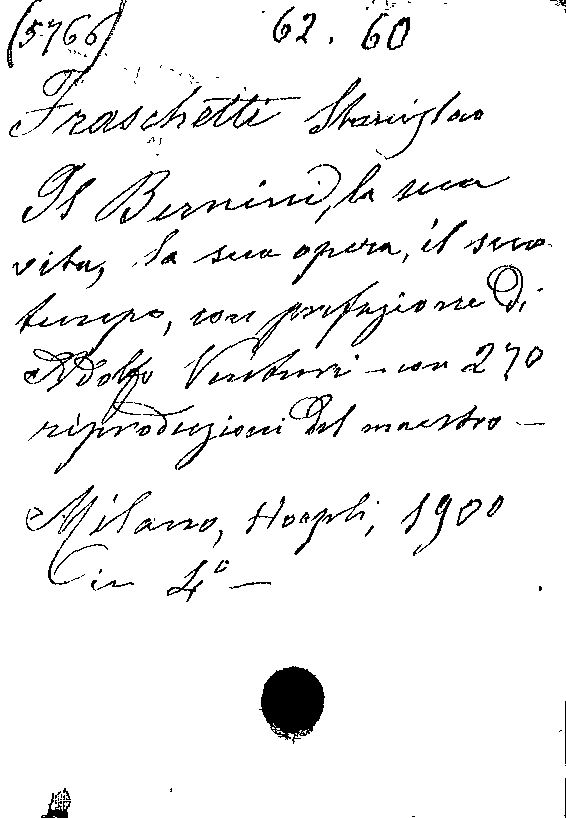 (5766) 62.60
Fraschetti Stanislao
Il Bernini, la sua
vita, la sua opera, il suo
tempo, con prefazione di
Adolfo Venturi - con 270
riproduzioni del maestro -
Milano, Hoepli, 1900
in 4° -